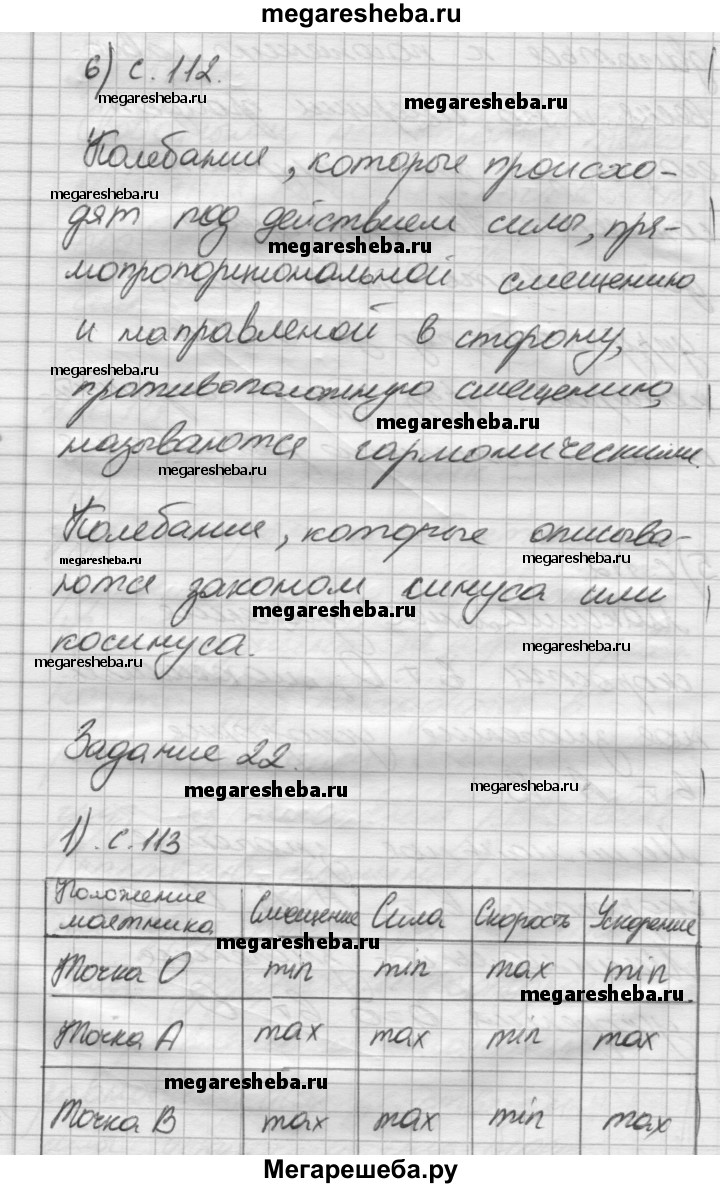 megaresheba.ru
6) с. 112.
megaresheba.ru megaresheba.ru
Колебания, которые происхо-
megaresheba.ru
дят под действием силы, пря-
megaresheba.ru
мопропорциональной смещению
и направленой в сторону,
megaresheba.ru
противоположную смещению,
megaresheba.ru
называются гармоническими.
megaresheba.ru
Колебания, которые описыва-
megaresheba.ru megaresheba.ru
ются законом синуса или
megaresheba.ru
косинуса.
megaresheba.ru megaresheba.ru
Задание 22.
megaresheba.ru megaresheba.ru
1). с. 113
Положение маятника Смещение Сила Скорость Ускорение
megaresheba.ru
Точка О min min max min
megaresheba.ru
Точка А max max min max
megaresheba.ru
Точка В max max min max
Мегарешеба.ру